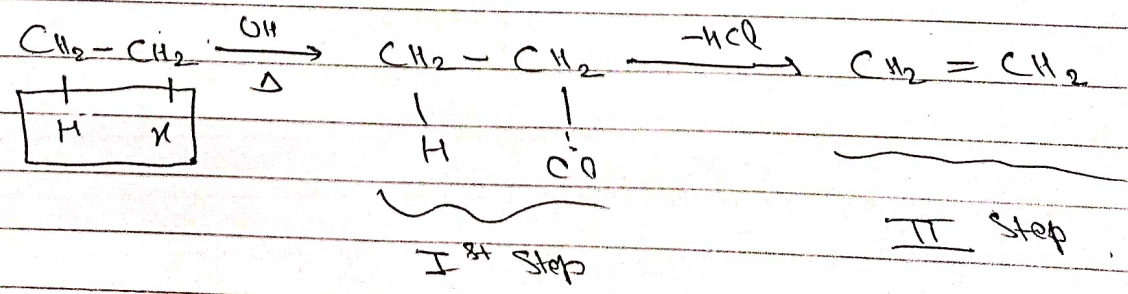 CH₂ – CH₂ OH Δ → CH₂ – CH₂ –HCl → CH₂ = CH₂
H X H Cl
Iˢᵗ Step II Step.